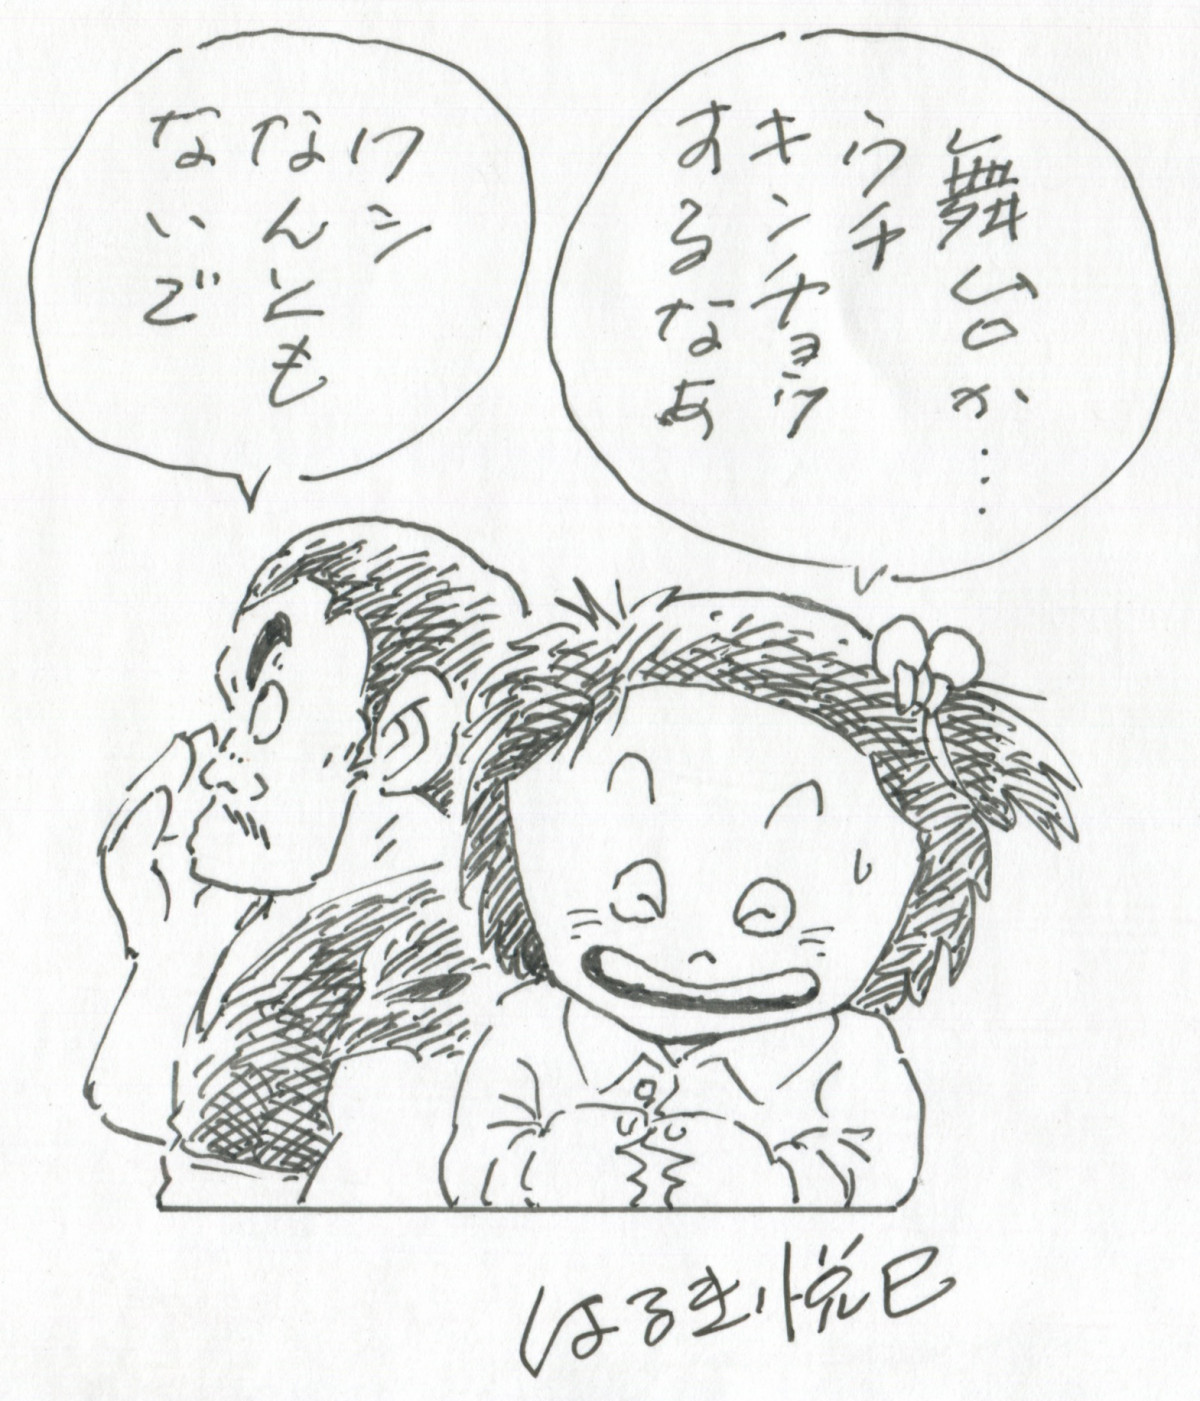 舞台か…
ウチ
キンチョウ
するなぁ
ワシ
なんとも
ないで
はるき悦巳